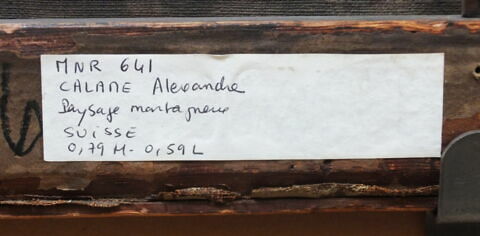 MNR 641
CALAME Alexandre
Paysage montagneux
SUISSE
0,79 H - 0,59 L